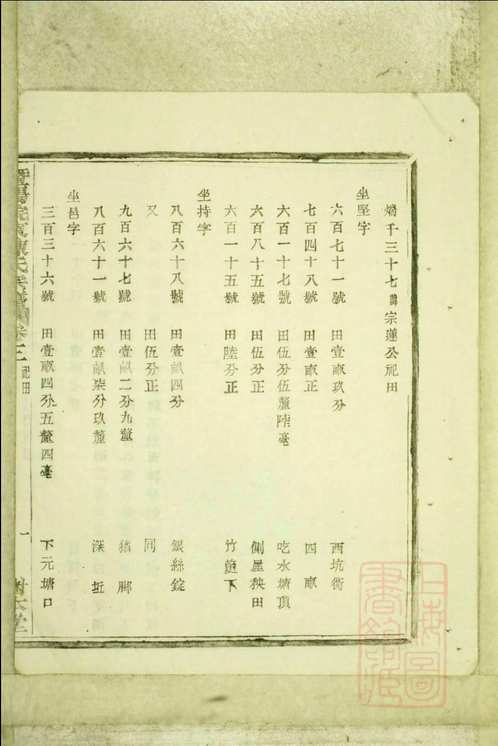 千三十七 宗蓮公祀田
坐堅字
六百七十一號 田壹畝玖分 西坑衕
七百四十八號 田壹畝正 四畝
六百一十七號 田伍分伍釐陸毫 吃水塘頂
六百八十五號 田伍分正 側屋秧田
六百一十五號 田陸分正 竹 下
坐持字
八百六十八號 田壹畝四分 銀絲錠
又 田伍分正 同
九百六十七號 田壹畝二分九釐 豬脚
八百六十一號 田壹畝柒分玖釐 深 坵
坐邑字
三百三十六號 田壹畝四分五釐四毫 下元塘口
氏 卷 三 祀田 一
上海圖書館藏